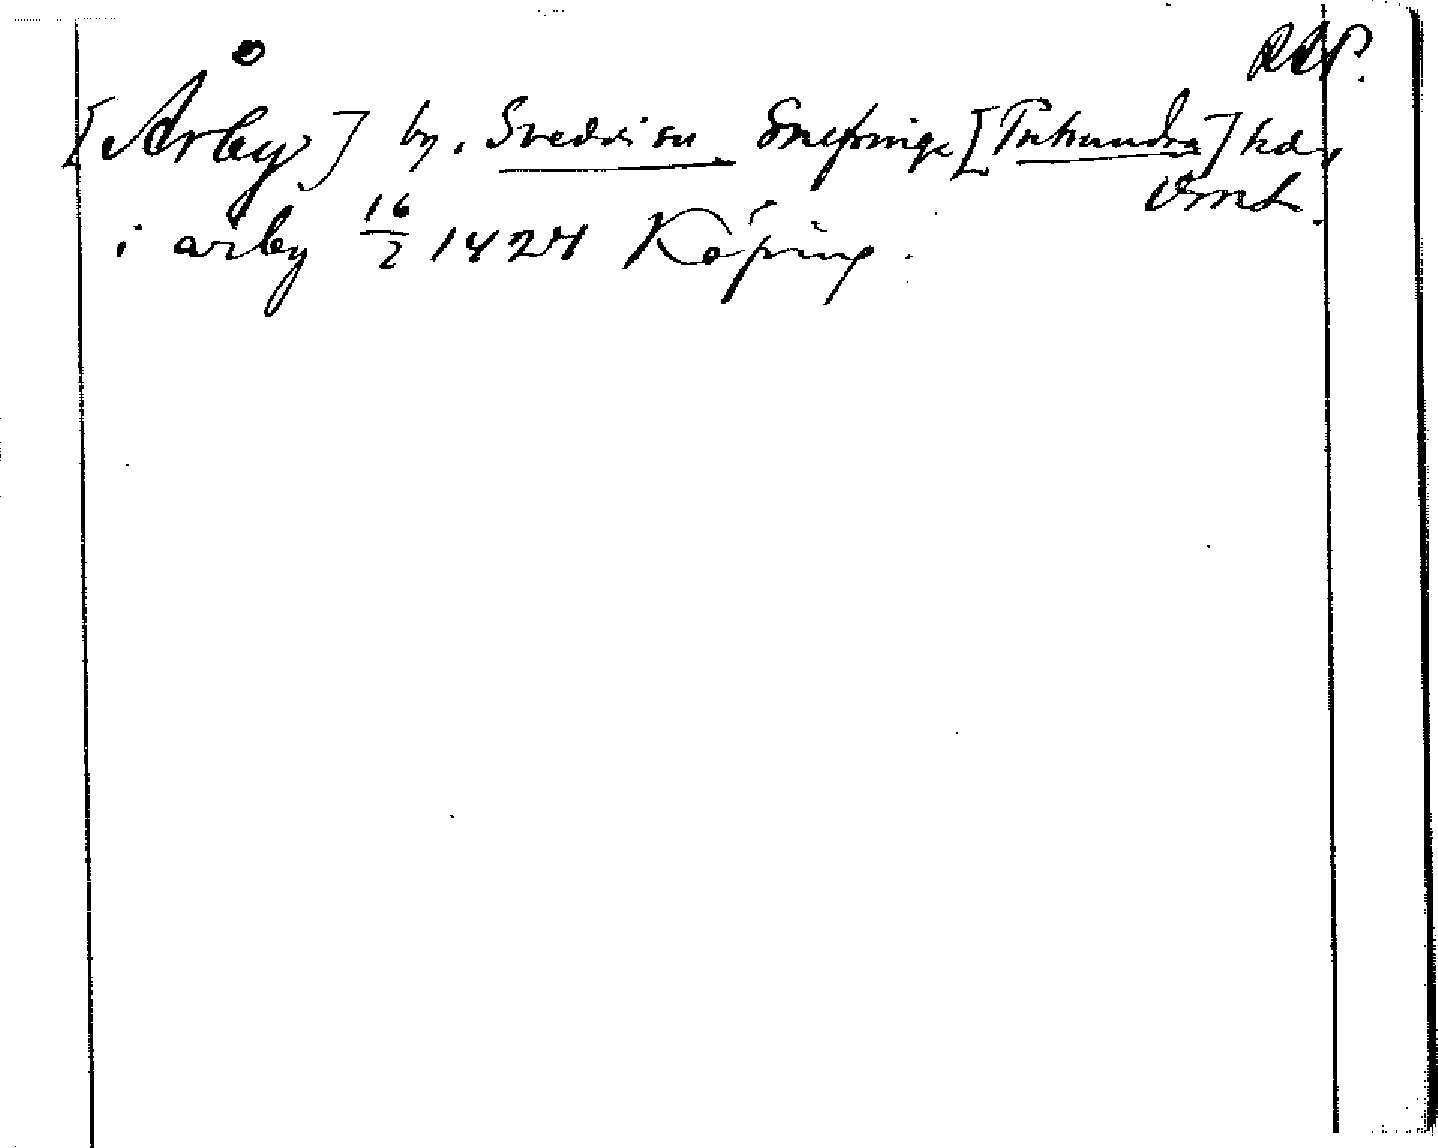 RAP.
[Årby] by, Svedvi sn Snefringe [Tuhundra] hd,
Vml.
i arby 16/2 1424 Köping.